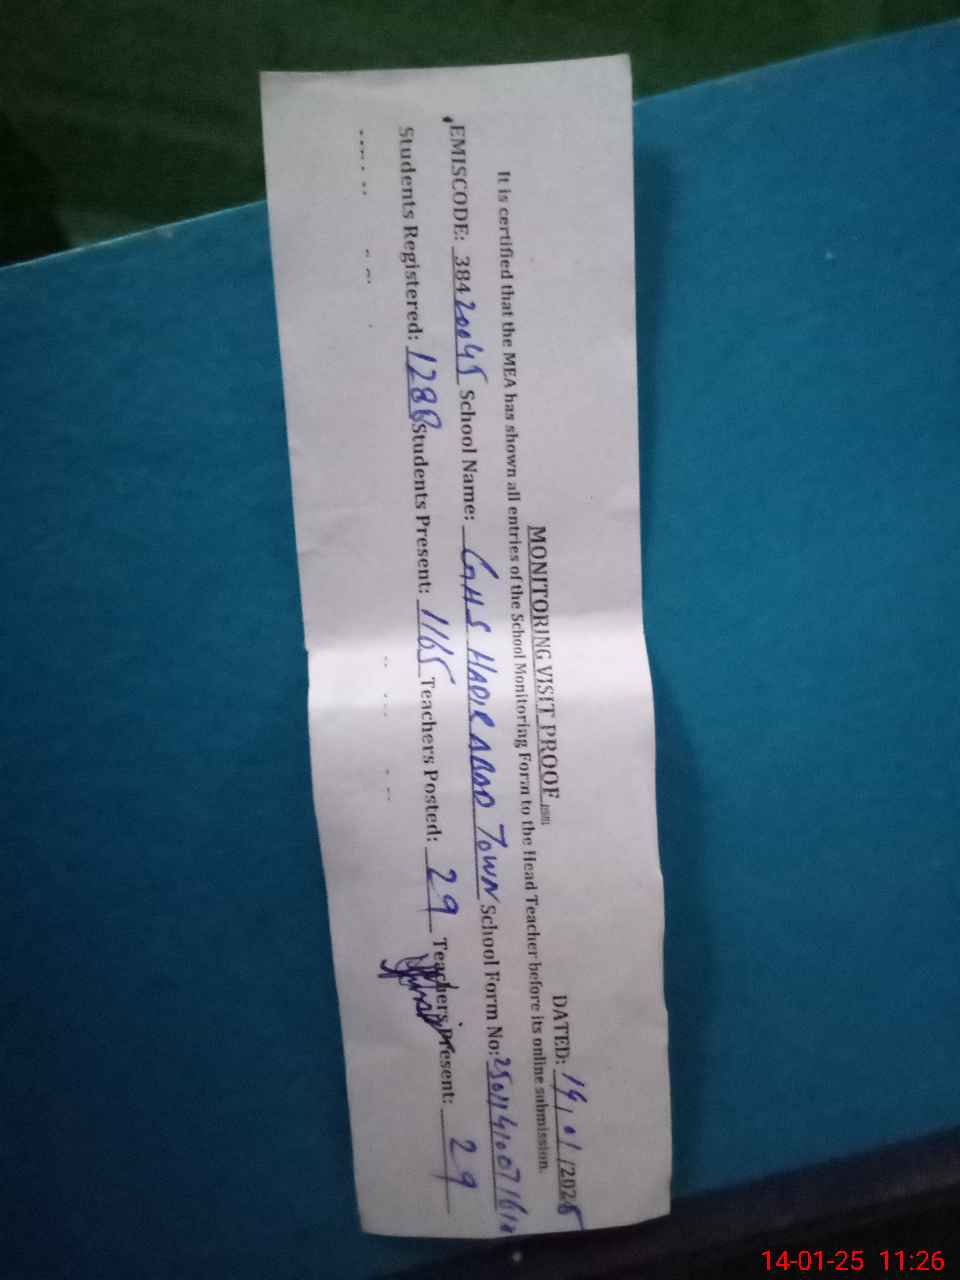 MONITORING VISIT PROOF
DATED: 14/01/2025
It is certified that the MEA has shown all entries of the School Monitoring Form to the Head Teacher before its online submission.
EMISCODE: 38420045 School Name: GHS HADIR ABAD TOWN School Form No:
Students Registered: 1288 Students Present: 1165 Teachers Posted: 29 Teachers Present: 29
14-01-25 11:26